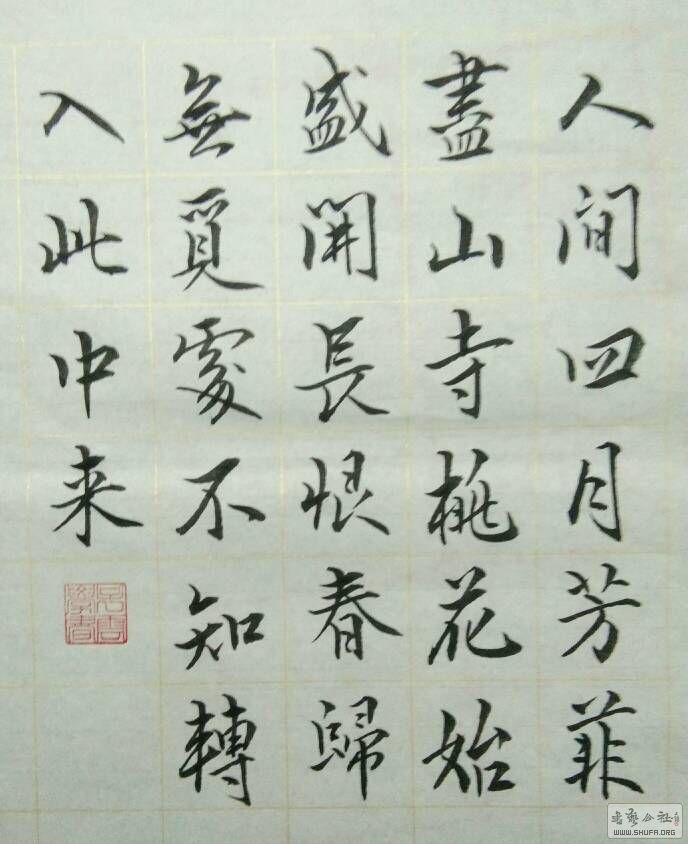 人间四月芳菲
盡山寺桃花始
盛開長恨春歸
無覓處不知轉
入此中来
WWW.SHUFA.ORG